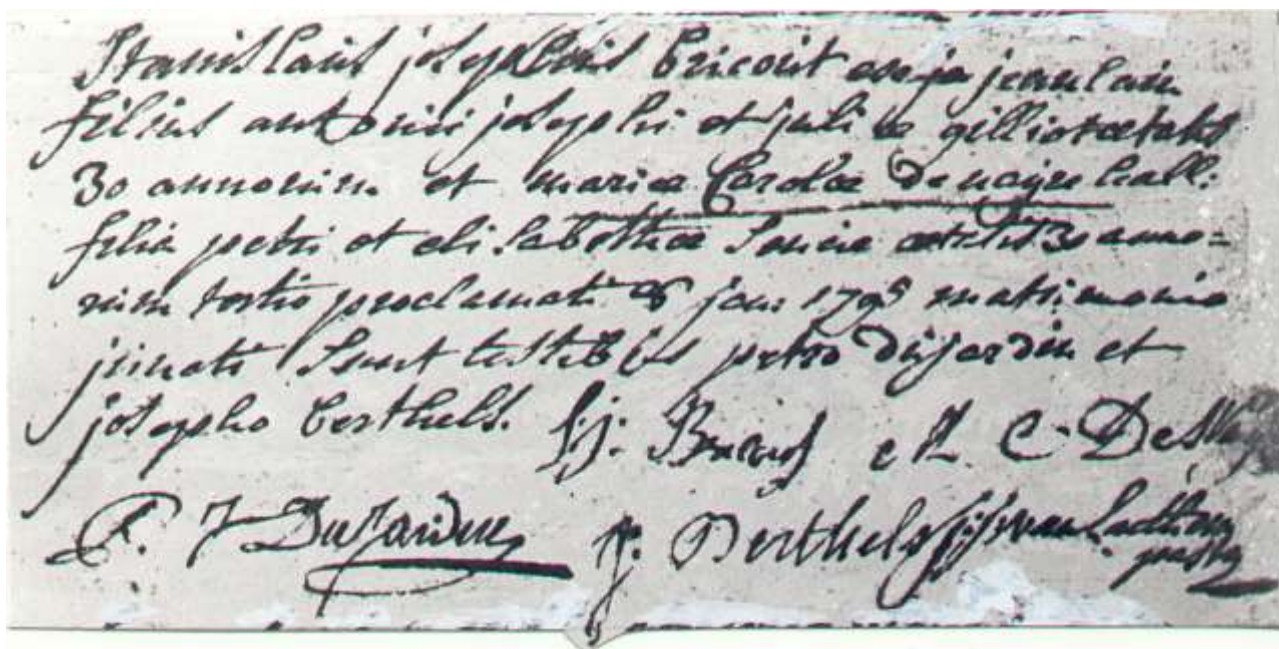 Stanislaus josephus bricout ex
filius antonini josephi et juliæ gilliot ætatis
30 annorum et maria Carola Denayre hall:
filia petri et elisabethæ ætatis 30 anno=
rum tertio proclamati 6 jan: 1795 matrimonio
juncti sunt testibus petro dujardin et
josepho berthels.
S.j. Bricout C. De
P. J Dujardin J. Berthels
pastor